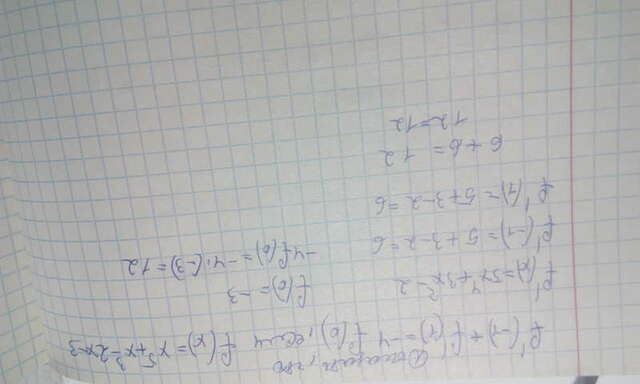 Доказать, что
f'(-1) + f'(1) = -4 f(0), если f(x) = x⁵ + x³ - 2x - 3
f'(x) = 5x⁴ + 3x² - 2
f(0) = -3
f'(-1) = 5 + 3 - 2 = 6
-4 f(0) = -4 · (-3) = 12
f'(1) = 5 + 3 - 2 = 6
6 + 6 = 12
12 = 12